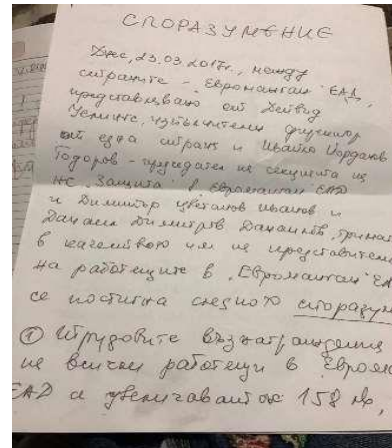 СПОРАЗУМЕНИЕ
Днес, 23.03.2017г., между
страните - „Евроманган“ ЕАД,
представлявано от Дейвид
изпълнителен директор
от една страна и Ивайло Йорданов
Тодоров - председател на секцията на
НС „Защита“ в „Евроманган“ ЕАД
и Димитър Цветанов Иванов и
Данаил Димитров Данаилов,
в качеството им на представители
на работещите в „Евроманган“ ЕА
се постигна следното споразу
① Трудовите възнаграждения
на всички работещи в Евром
ЕАД се увеличават с 158 лв,